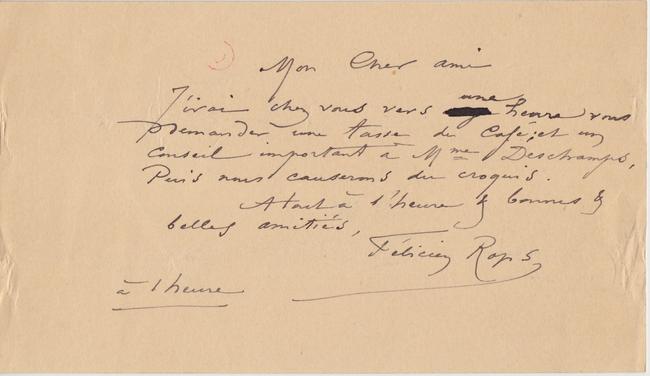 Mon Cher ami
J'irai chez vous vers une heure vous
demander une tasse de Café, et un
conseil important à Mme Deschamps,
Puis nous causerons du croquis.
A tout à l'heure & bonnes &
belles amitiés,
Félicien Rops
à 1 heure